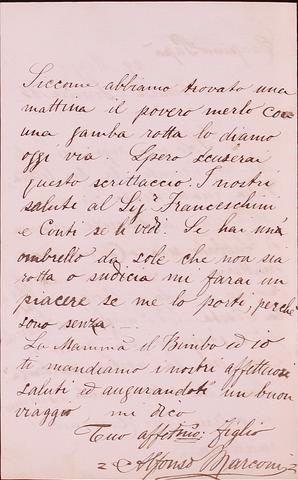 Siccome abbiamo trovato una
mattina il povero merlo con
una gamba rotta lo diamo
oggi via. Spero scuserai
questo scrittaccio. I nostri
saluti al Sigr Franceschini
e Conti se li vedi. Se hai un'
ombrello da sole che non sia
rotta o sudicia mi farai un
piacere se me lo porti, perchè
sono senza —.
La Mamma il Bimbo ed io
ti mandiamo i nostri affettuosi
saluti ed augurandoti un buon
viaggio mi dico
Tuo affetmo: figlio
Alfonso Marconi